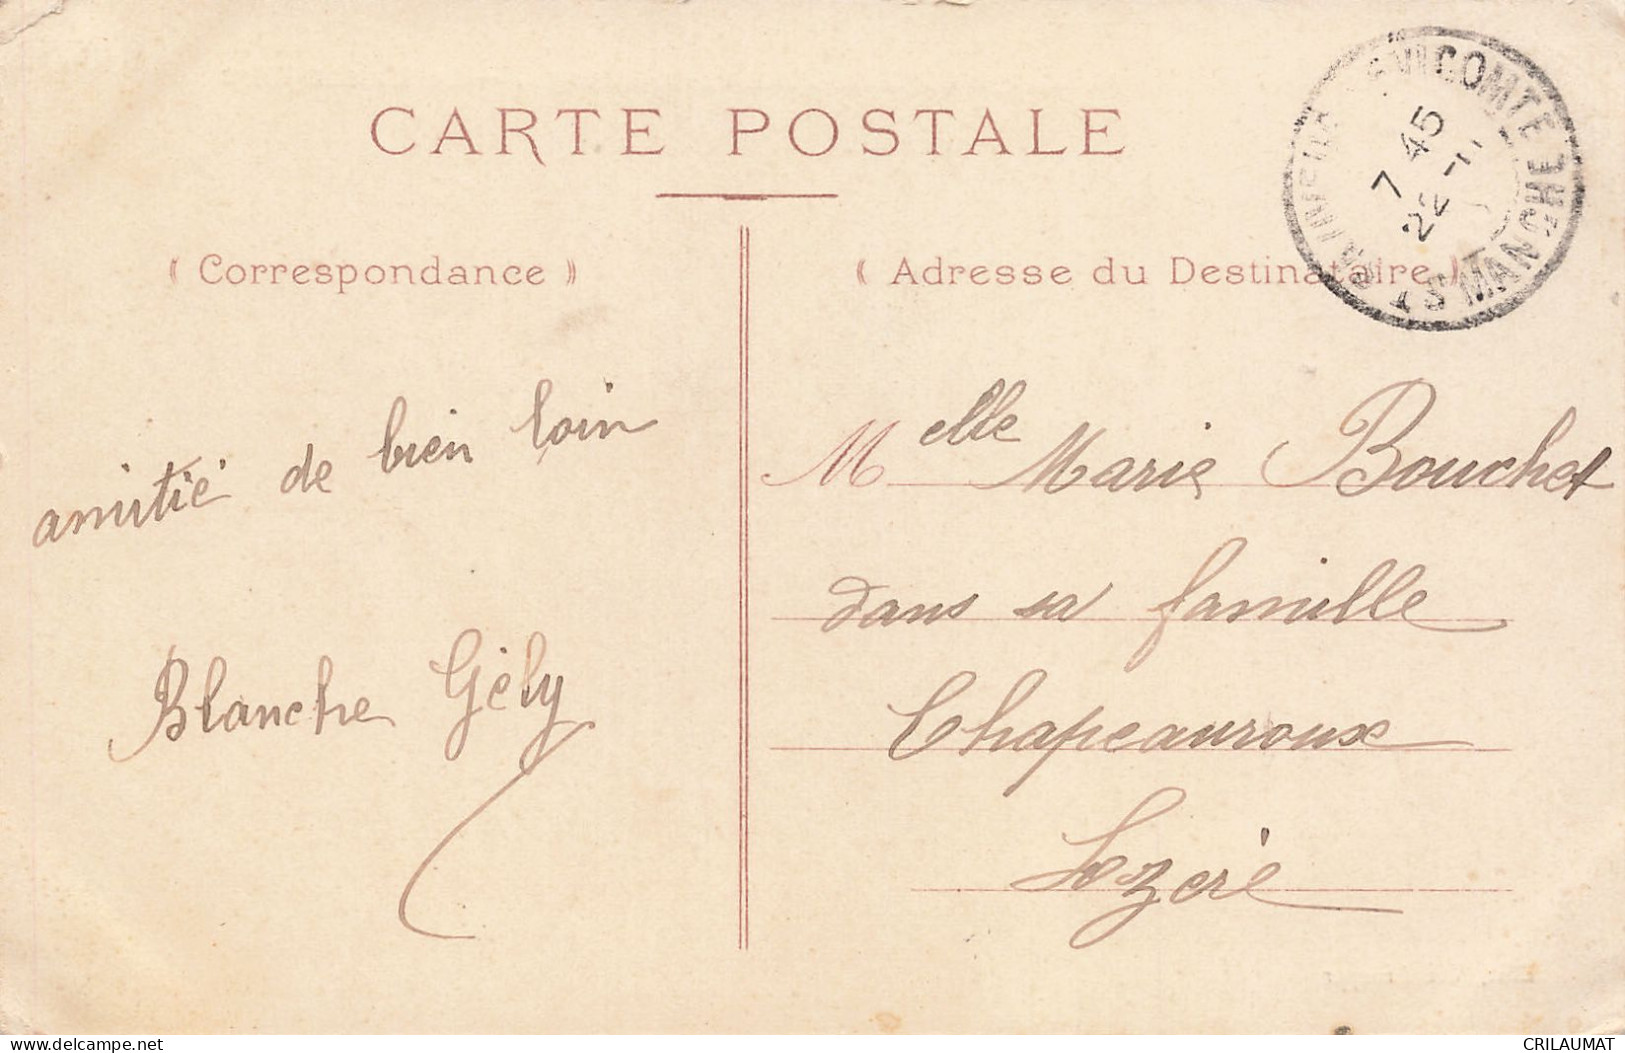 CARTE POSTALE
« Correspondance »
« Adresse du Destinataire »
7 45
22
amitié de bien loin
Blanche Gély
Melle Marie Bouchet
dans sa famille
Chapeauroux
Lozère
www.delcampe.net
CRILAUMAT